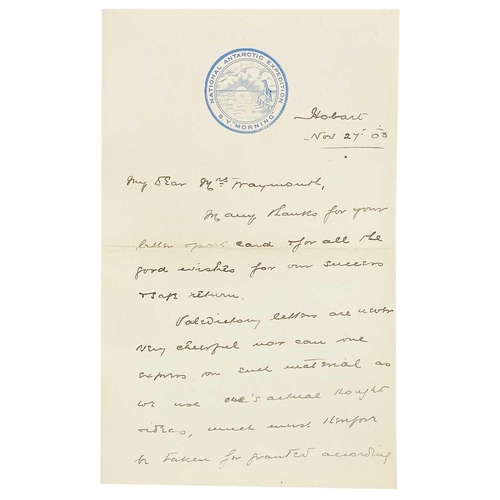 NATIONAL ANTARCTIC EXPEDITION
S.Y. "MORNING"
Hobart
Nov 27 03
My Dear Mrs Fraymouth,
Many thanks for your
letter & post card & for all the
good wishes for our success
& safe return.
Valedictory letters are never
very cheerful nor can one
express on such material as
we use one's actual thought
& ideas, much must therefore
be taken for granted according